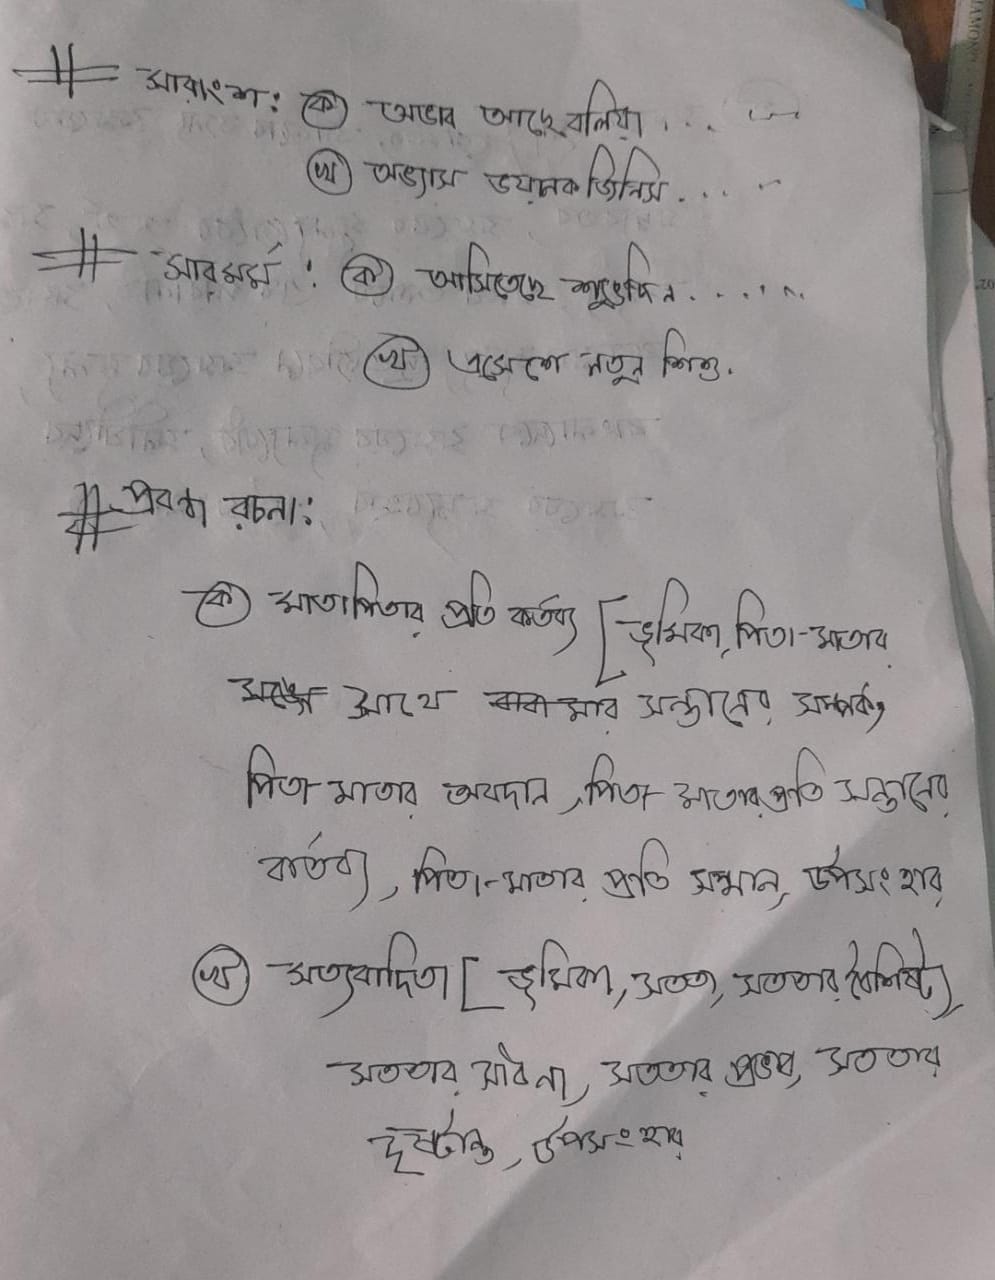 # সারাংশ: (ক) অভাব আছে বলিয়া . . .
(খ) অভ্যাস ভয়ানক জিনিস . . .
# সারমর্ম : (ক) আসিতেছে শুভদিন . . . . . .
(খ) এসেছে নতুন শিশু.
# প্রবন্ধ রচনা:
(ক) মাতাপিতার প্রতি কর্তব্য [ ভূমিকা, পিতা-মাতার
সাথে সন্তানের সম্পর্ক,
পিতা-মাতার অবদান, পিতা-মাতার প্রতি সন্তানের
কর্তব্য, পিতা-মাতার প্রতি সম্মান, উপসংহার
(খ) সত্যবাদিতা [ ভূমিকা, সততা, সততার বৈশিষ্ট্য,
সততার সাধনা, সততার প্রভাব, সততার
দৃষ্টান্ত, উপসংহার